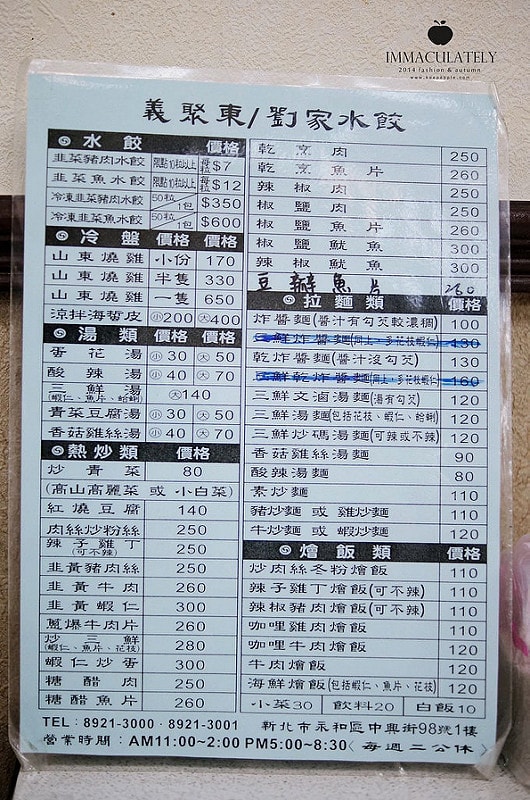 IMMACULATELY
2014 fashion & autumn
義聚東/劉家水餃
水餃 價格
韭菜豬肉水餃 限點10粒以上 每粒$7
韭菜魚水餃 限點10粒以上 每粒$12
冷凍韭菜豬肉水餃 50粒/1包 $350
冷凍韭菜魚水餃 50粒/1包 $600
冷盤 價格 價格
山東燒雞 小份 170
山東燒雞 半隻 330
山東燒雞 一隻 650
涼拌海蜇皮 小200 大400
湯類 價格 價格
蛋花湯 小30 大50
酸辣湯 小40 大70
三鮮湯(蝦仁、魚片、蛤蜊) 大140
青菜豆腐湯 小30 大50
香菇雞絲湯 小40 大70
熱炒類 價格
炒青菜 80
(高山高麗菜 或 小白菜)
紅燒豆腐 140
肉絲炒粉絲 250
辣子雞丁(可不辣) 250
韭黃豬肉絲 250
韭黃牛肉 260
韭黃蝦仁 300
蔥爆牛肉片 260
炒三鮮(蝦仁、魚片、花枝) 280
蝦仁炒蛋 300
糖醋肉 250
糖醋魚片 260
乾烹肉 250
乾烹魚片 260
辣椒肉 250
椒鹽肉 250
椒鹽魚片 260
椒鹽魷魚 300
辣椒魷魚 300
豆瓣魚片 260
拉麵類 價格
炸醬麵(醬汁有勾芡較濃稠) 100
三鮮炸醬麵(同上,多花枝蝦仁) 130
乾炸醬麵(醬汁沒勾芡) 130
三鮮乾炸醬麵(同上,多花枝蝦仁) 160
三鮮文滷湯麵(湯有勾芡) 120
三鮮湯麵(包括花枝、蝦仁、蛤蜊) 120
三鮮炒碼湯麵(可辣或不辣) 120
香菇雞絲湯麵 90
酸辣湯麵 80
素炒麵 110
豬炒麵 或 雞炒麵 110
牛炒麵 或 蝦炒麵 120
燴飯類 價格
炒肉絲冬粉燴飯 110
辣子雞丁燴飯(可不辣) 110
辣椒豬肉燴飯(可不辣) 110
咖哩雞肉燴飯 110
咖哩牛肉燴飯 120
牛肉燴飯 120
海鮮燴飯(包括蝦仁、魚片、花枝) 120
小菜30 飲料20 白飯10
TEL:8921-3000·8921-3001 新北市永和區中興街98號1樓
營業時間:AM11:00~2:00 PM5:00~8:30〈每週二公休〉